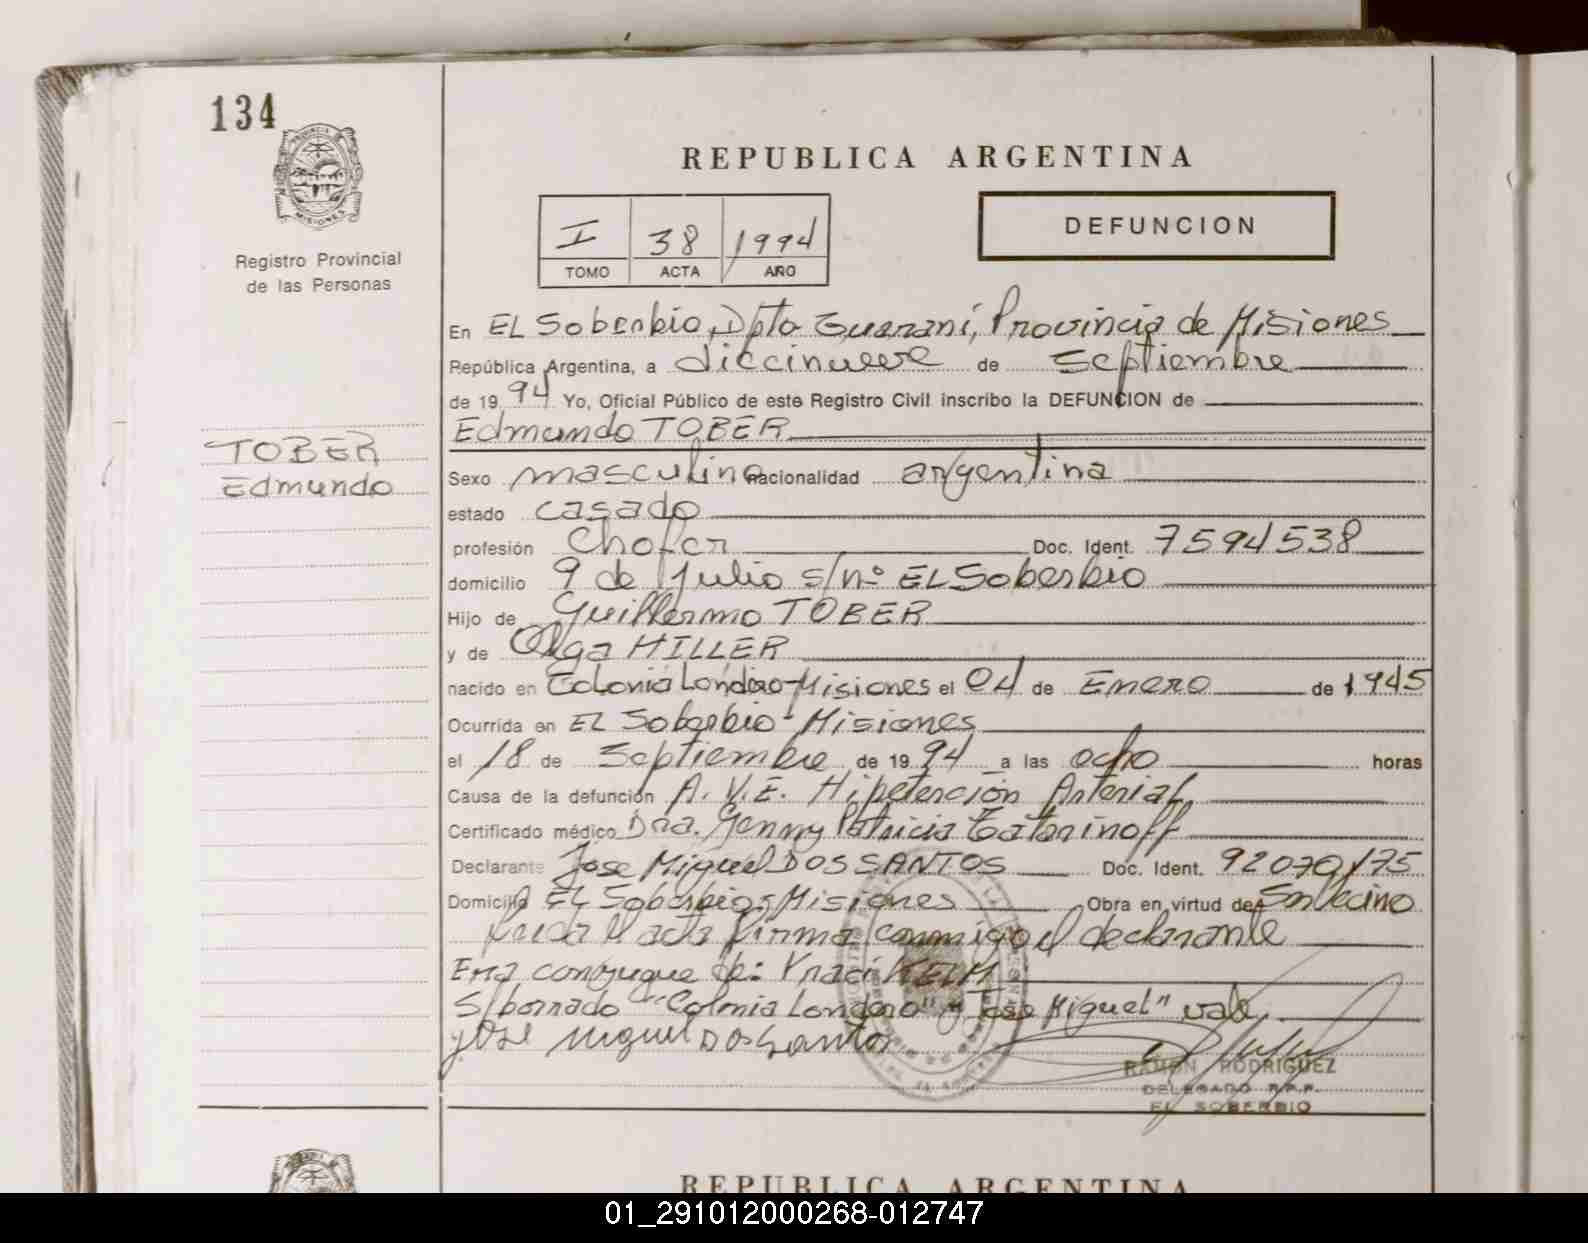 134
PROVINCIA DE
MISIONES
Registro Provincial
de las Personas
REPUBLICA ARGENTINA
I 38 1994
TOMO ACTA AÑO
DEFUNCION
En EL Soberbio, Dpto Guaraní, Provincia de Misiones
República Argentina, a diecinueve de Septiembre
de 19 94 Yo, Oficial Público de este Registro Civil inscribo la DEFUNCION de
Edmundo TOBER
TOBER
Edmundo
Sexo masculino nacionalidad argentina
estado casado
profesión Chofer Doc. Ident. 7594538
domicilio 9 de Julio s/nº EL Soberbio
Hijo de Guillermo TOBER
y de Olga HILLER
nacido en Colonia Londero-Misiones el 04 de Enero de 1945
Ocurrida en EL Soberbio-Misiones
el 18 de Septiembre de 19 94 a las ocho horas
Causa de la defunción A.V.E. Hipetención Arterial
Certificado médico Dra. Jenny Patricia
Declarante Jose Miguel DOS SANTOS Doc. Ident. 92070175
Domicilio EL Soberbio-Misiones Obra en virtud de Ser vecino
Leida el acta firma conmigo el declarante
Era conyugue de: Yraci KELM
S/borrado "Colonia Londero" y "Jose Miguel" vale
José Miguel Dos Santos
RAMON RODRIGUEZ
DELEGADO R.P.P.
EL SOBERBIO
REPUBLICA ARGENTINA
01_291012000268-012747